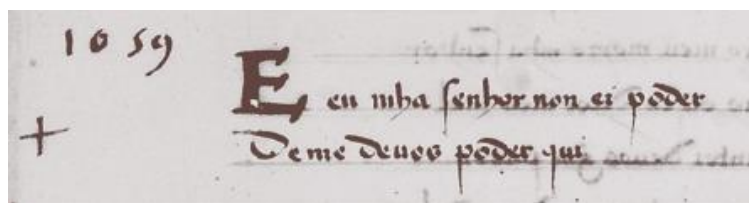 1059
E eu mha senhor non ei poder
De me deuos poder qui